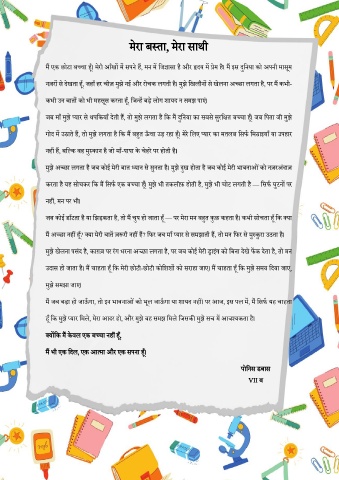 मेरा बस्ता, मेरा साथी
मैं एक छोटा बच्चा हूँ। मेरी आँखों में सपने हैं, मन में जिज्ञासा है और हृदय में प्रेम है। मैं इस दुनिया को अपनी मासूम
नजरों से देखता हूँ, जहाँ हर चीज़ मुझे नई और रोचक लगती है। मुझे खिलौनों से खेलना अच्छा लगता है, पर मैं कभी-
कभी उन बातों को भी महसूस करता हूँ, जिन्हें बड़े लोग शायद न समझ पाएं।
जब माँ मुझे प्यार से थपकियाँ देती हैं, तो मुझे लगता है कि मैं दुनिया का सबसे सुरक्षित बच्चा हूँ। जब पिता जी मुझे
गोद में उठाते हैं, तो मुझे लगता है कि मैं बहुत ऊँचा उड़ रहा हूँ। मेरे लिए प्यार का मतलब सिर्फ मिठाइयाँ या उपहार
नहीं हैं, बल्कि वह मुस्कान है जो माँ-पापा के चेहरे पर होती है।
मुझे अच्छा लगता है जब कोई मेरी बात ध्यान से सुनता है। मुझे दुख होता है जब कोई मेरी भावनाओं को नज़रअंदाज
करता है यह सोचकर कि मैं सिर्फ एक बच्चा हूँ। मुझे भी तकलीफ होती है, मुझे भी चोट लगती है — सिर्फ घुटनों पर
नहीं, मन पर भी।
जब कोई डाँटता है या झिड़कता है, तो मैं चुप हो जाता हूँ — पर मेरा मन बहुत कुछ कहता है। कभी सोचता हूँ कि क्या
मैं अच्छा नहीं हूँ? क्या मेरी बातें ज़रूरी नहीं हैं? फिर जब माँ प्यार से समझाती हैं, तो मन फिर से मुस्कुरा उठता है।
मुझे खेलना पसंद है, कागज़ पर रंग भरना अच्छा लगता है, पर जब कोई मेरी ड्राइंग को बिना देखे फेंक देता है, तो मन
उदास हो जाता है। मैं चाहता हूँ कि मेरी छोटी-छोटी कोशिशों को सराहा जाए। मैं चाहता हूँ कि मुझे समय दिया जाए,
मुझे समझा जाए।
मैं जब बड़ा हो जाऊँगा, तो इन भावनाओं को भूल जाऊँगा या शायद नहीं। पर आज, इस पल में, मैं सिर्फ यह चाहता
हूँ कि मुझे प्यार मिले, मेरा आदर हो, और मुझे वह समझ मिले जिसकी मुझे सच में आवश्यकता है।
क्योंकि मैं केवल एक बच्चा नहीं हूँ,
मैं भी एक दिल, एक आत्मा और एक सपना हूँ।
पोनिस डबास
VII ब